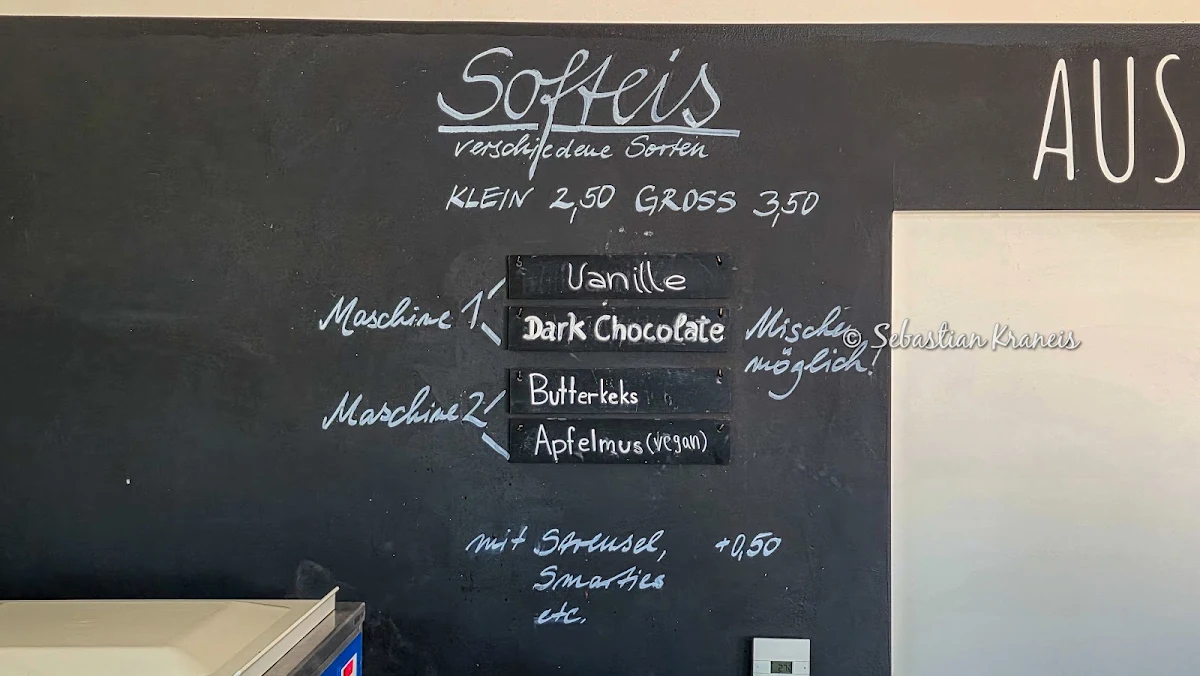 Softeis
verschiedene Sorten
KLEIN 2,50 GROSS 3,50
AUS
Maschine 1
Vanille
Dark Chocolate
Mischen
möglich!
© Sebastian Kraneis
Maschine 2
Butterkeks
Apfelmus (vegan)
mit Streusel, +0,50
Smarties
etc.